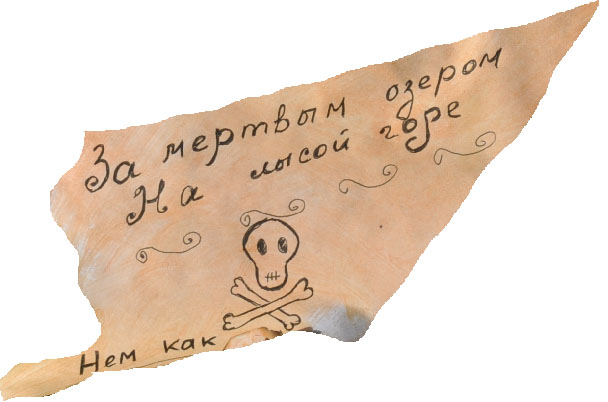 За мертвым озером
На лысой горе
Нем как